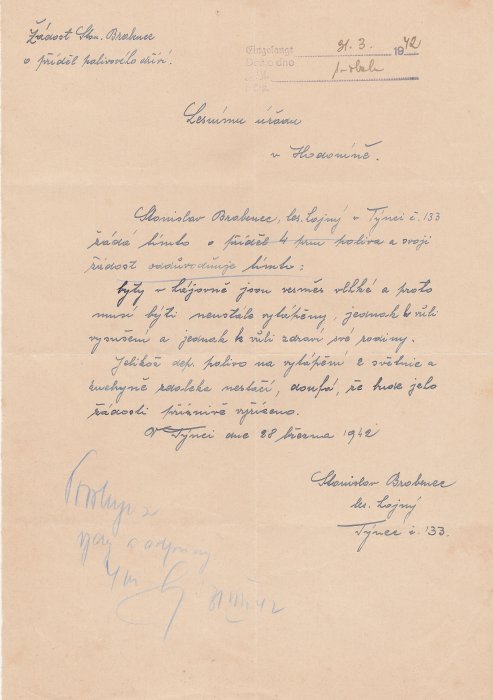 Žádost Stan. Brabenec
o příděl palivového dříví.
Eingelangt
Došlo dne
31. 3. 1942
Lesnímu úřadu
v Hodoníně.
Stanislav Brabenec, les. hajný v Týnci č. 133
žádá tímto o příděl 4 prm paliva a svoji
žádost odůvodňuje tímto:
byty v hájovně jsou vesměs vlhké a proto
musí býti neustále vytápěny, jednak k vůli
vysušení a jednak k vůli zdraví své rodiny.
Jelikož dep. palivo na vytápění 2 světnic a
kuchyně zdaleka nestačí, doufá, že bude jeho
žádosti příznivě vyřízeno.
V Týnci dne 28 března 1942
Stanislav Brabenec
les. hajný
Týnec č. 133.